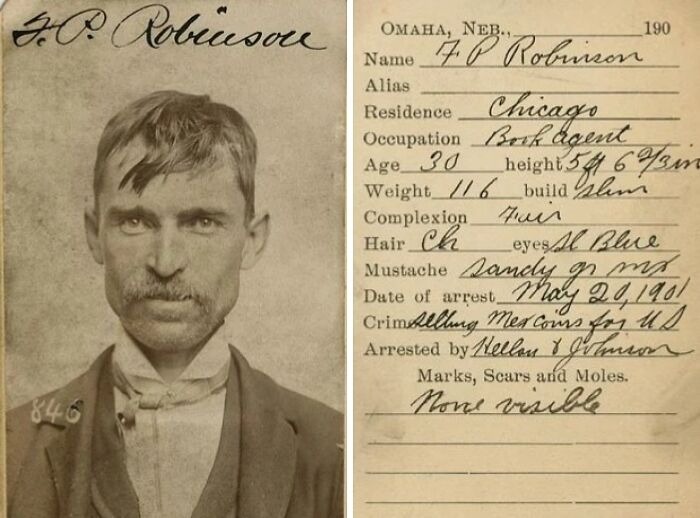 F. P. Robinson
846
OMAHA, NEB., 190
Name F P Robinson
Alias
Residence Chicago
Occupation Book agent
Age 30 height 5 ft 6 2/3 in
Weight 116 build Slim
Complexion Fair
Hair Ch eyes Sl Blue
Mustache Sandy gr mx
Date of arrest May 20, 1901
Crime Selling Mex Coins for U S
Arrested by & Johnson
Marks, Scars and Moles.
None visible